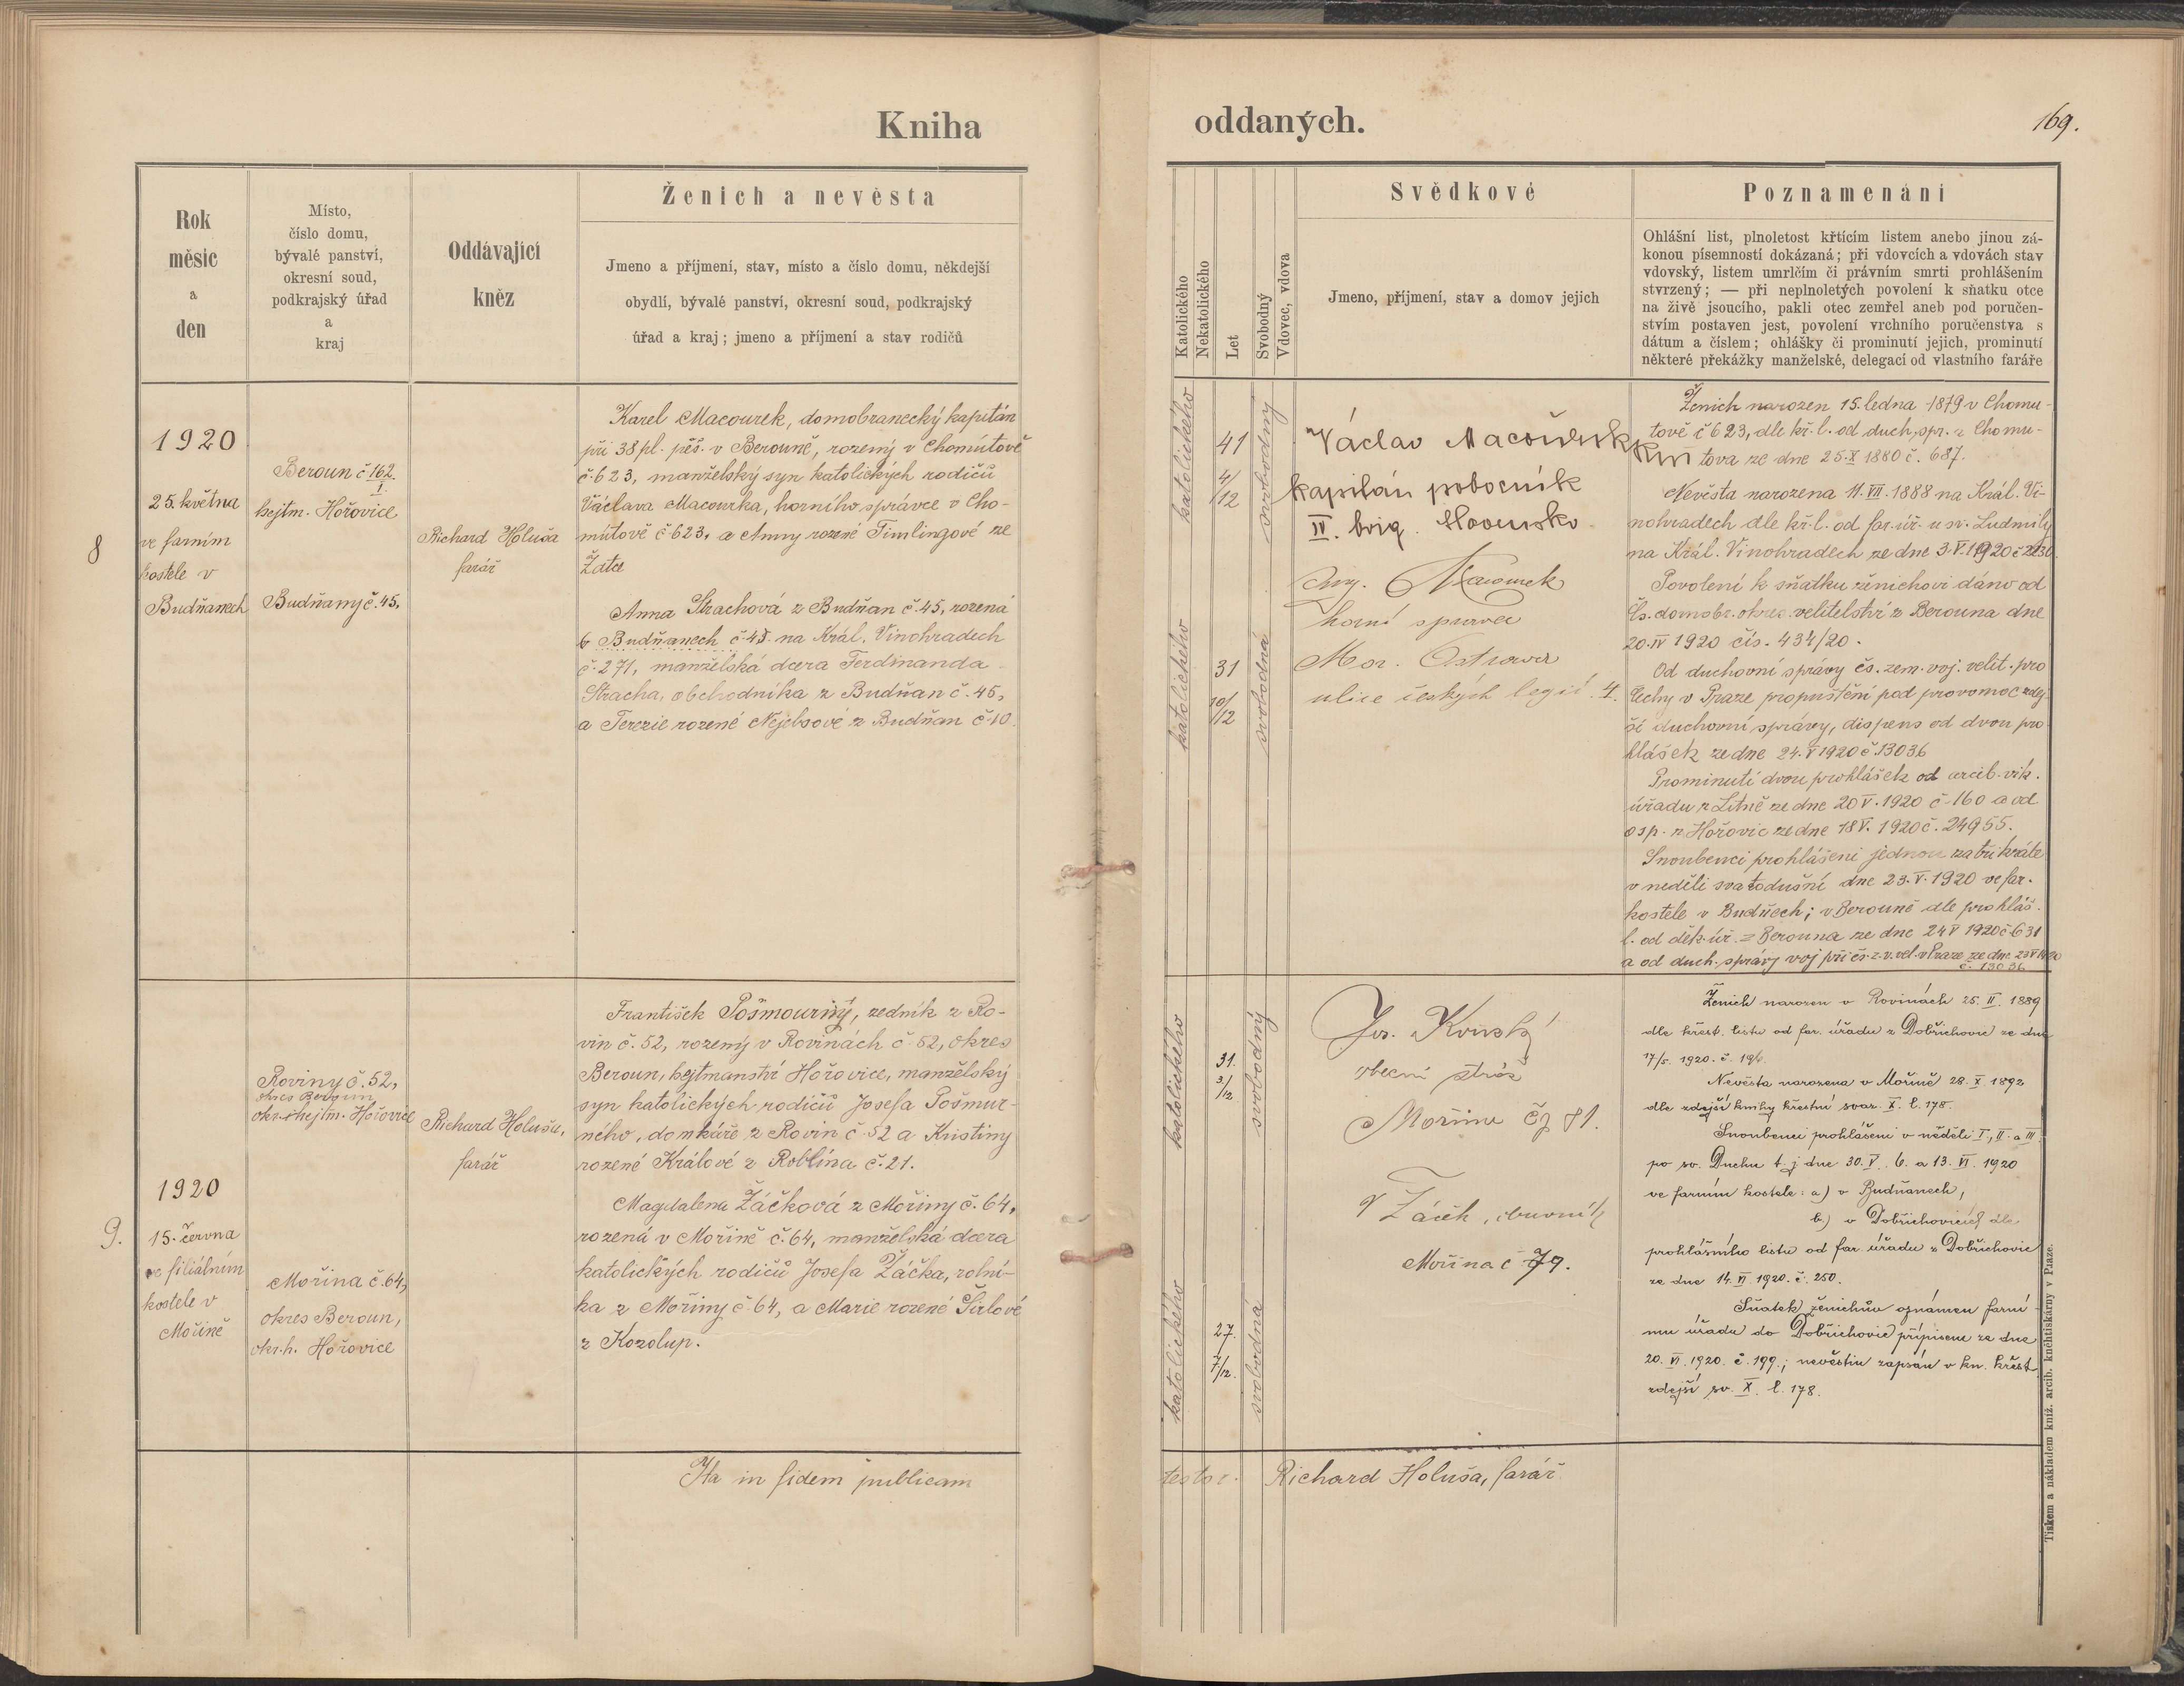 Kniha
oddaných.
169.
Rok
měsíc
a
den
Místo,
číslo domu,
bývalé panství,
okresní soud,
podkrajský úřad
a
kraj
Oddávající
kněz
Ženich a nevěsta
Jmeno a příjmení, stav, místo a číslo domu, někdejší
obydlí, bývalé panství, okresní soud, podkrajský
úřad a kraj; jmeno a příjmení a stav rodičů
Katolického
Nekatolického
Let
Svobodný
Vdovec, vdova
Svědkové
Jmeno, příjmení, stav a domov jejich
Poznamenání
Ohlášní list, plnoletost křtícím listem anebo jinou zá-
konou písemností dokázaná; při vdovcích a vdovách stav
vdovský, listem umrlčím či právním smrti prohlášením
stvrzený; — při neplnoletých povolení k sňatku otce
na živě jsoucího, pakli otec zemřel aneb pod poručen-
stvím postaven jest, povolení vrchního poručenstva s
dátum a číslem; ohlášky či prominutí jejich, prominutí
některé překážky manželské, delegací od vlastního faráře
8
1920
25. května
ve farním
kostele v
Budňanech
Beroun č 162.
I.
hejtm. Hořovice
Budňany č. 45,
Richard Holuša
farář
Karel Macourek, domobranecký kapitán
při 38 pl. pěš. v Berouně, rozený v Chomútově
č. 623, manželský syn katolických rodičů
Václava Macourka, horního správce v Cho-
mútově č 623, a Anny rozené Timlingové ze
Žatce
Anna Strachová z Budňan č. 45, rozená
v Budňanech č. 45 na Král. Vinohradech
č. 271, manželská dcera Ferdinanda
Stracha, obchodníka z Budňan č. 45,
a Terezie rozené Nejebsové z Budňan č. 10.
katolického
41
4/12
svobodný
katolického
31
10/12
svobodná
Václav Macourek
kapitán pobočník
IV. brig. Slovensko
Ing. Macourek
horní správce
Mor. Ostrava
ulice českých legií 4.
Ženich narozen 15. ledna 1879 v Chomu-
tově č 623, dle kř. l. od duch. spr. z Chomu-
tova ze dne 25. X 1880 č. 687.
Nevěsta narozena 11. VII. 1888 na Král. Vi-
nohradech dle kř. l. od far. úř. u sv. Ludmily
na Král. Vinohradech ze dne 3. V. 1920
Povolení k sňatku ženichovi dáno od
čs. domobr. okres. velitelství z Berouna dne
20. IV 1920 čís. 434/20.
Od duchovní správy čs. zem. voj. velit. pro
Čechy v Praze propuštění pod pravomoc zdej-
ší duchovní správy, dispens od dvou pro
hlášek ze dne 24. V 1920 č. 13036
Prominutí dvou prohlášek od arcib. vik.
úřadu z Litně ze dne 20 V. 1920 č. 160 a od
osp. z Hořovic ze dne 18 V. 1920 č. 24955.
Snoubenci prohlášeni jednou za tři kráte
v neděli svatodušní dne 23. V. 1920 ve far.
kostele v Budňech; v Berouně dle prohláš.
l. od děk. úř. z Berouna ze dne 24 V 1920 č 631
a od duch. správy voj při čs. z. v. vel. v Praze ze dne 23 V 1920
č. 13036
9.
1920
15. června
ve filiálním
kostele v
Mořině
Roviny č. 52,
okres Beroun
okr. hejtm. Hořovice
Mořina č. 64,
okres Beroun,
okr. h. Hořovice
Richard Holuša,
farář
František Pošmourný, zedník z Ro-
vin č. 52, rozený v Rovinách č. 52, okres
Beroun, hejtmanství Hořovice, manželský
syn katolických rodičů Josefa Pošmur-
ného, domkáře z Rovin č. 52 a Kristiny
rozené Králové z Roblína č. 21.
Magdalena Žáčková z Mořiny č. 64,
rozená v Mořině č. 64, manželská dcera
katolických rodičů Josefa Žáčka, rolní-
ka z Mořiny č. 64, a Marie rozené Širlové
z Kozolup.
katolického
31.
3/12
svobodný
katolického
27.
7/12.
svobodná
Jos. Konský
obecní stráž
Mořina čp 81.
Žáček, obuvník
Mořina č 79.
Ženich narozen v Rovinách 25. II. 1889
dle křest. listu od far. úřadu z Dobřichovic ze dne
17/5. 1920. č. 196.
Nevěsta narozena v Mořině 28. X. 1892
dle zdejší knihy křestní svaz. X. l. 178.
Snoubenci prohlášeni v neděli I., II. a III
po sv. Duchu t. j dne 30. V. 6. a 13. VI. 1920
ve farním kostele: a) v Budňanech,
b) v Dobřichovicích dle
prohlášního listu od far. úřadu z Dobřichovic
ze dne 14. VI 1920. č. 250.
Sňatek ženichův oznámen farní-
mu úřadu do Dobřichovic přípisem ze dne
20. VI. 1920. č. 199.; nevěstin zapsán v kn. křest.
zdejší sv. X. l. 178.
Ita in fidem publicam
testor.
Richard Holuša, farář.
Tiskem a nákladem kníž. arcib. knihtiskárny v Praze.